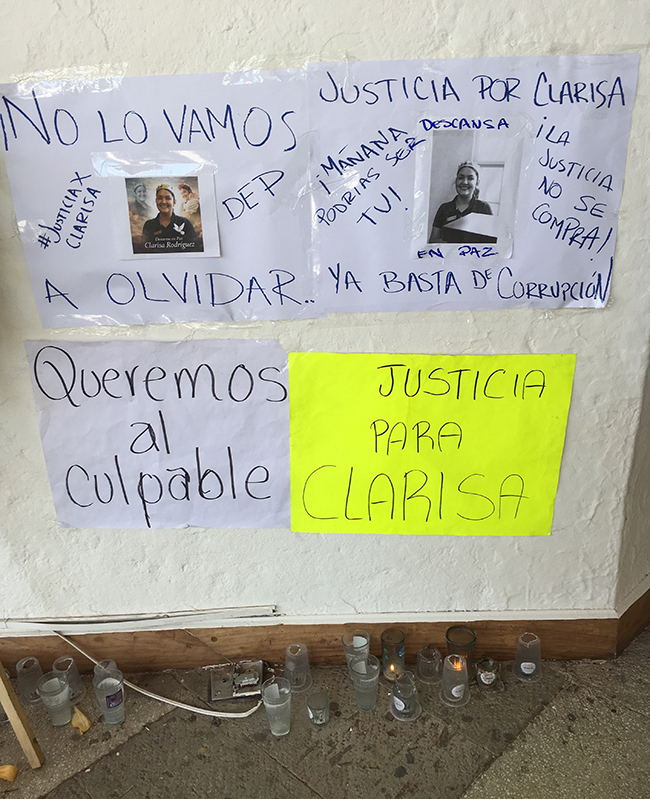 ¡NO LO VAMOS
#JUSTICIA X
CLARISA
Descansa en Paz
Clarisa Rodríguez
DEP
A OLVIDAR..
JUSTICIA POR CLARISA
¡MAÑANA
PODRIAS SER
TU!
DESCANSA
EN PAZ
¡LA
JUSTICIA
NO SE
COMPRA!
YA BASTA DE CORRUPCIÓN
Queremos
al
culpable
JUSTICIA
PARA
CLARISA